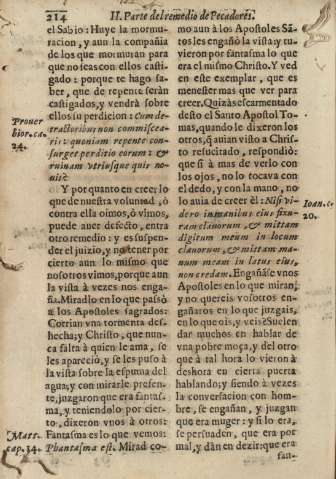 214 II. Parte del remedio de Pecadores.
el Sabio: Huye la mormu-
racion, y aun la compañia
de los que mormuran para
que no seas con ellos casti-
gado: porque te hago sa-
ber, que de repente serán
castigados, y vendrá sobre
ellos su perdicion: Cum de-
tractoribus non commiscea-
ris: quoniam repente con-
surget perditio eorum: &
ruinam utriusque quis no-
uit?
Prouer
bior. ca.
24.
Y por quanto en creer lo
que de nuestra voluntad, ò
contra ella oimos, ò vimos,
puede auer defecto, entra
otro remedio: y es suspen-
der el juizio, y no tener por
cierto aun lo mismo que
nosotros vimos, porque aun
la vista à vezes nos enga-
ña. Miradlo en lo que pasò
a los Apostoles sagrados:
Corrian vna tormenta des-
hecha; y Christo, que nun-
ca falta à quien le ama, se
les apareciò, y se les puso à
la vista sobre la espuma del
agua; y con mirarle presen-
te, juzgaron que era fantas-
ma, y teniendolo por cier-
to, dixeron vnos à otros:
Fantasma es lo que vemos:
Phantasma est. Mirad co-
Matt.
cap. 14.
mo aun à los Apostoles Sã-
tos les engañò la vista; y tu-
vieron por fantasma lo que
era el mismo Christo. Y ved
en este exemplar, que es
menester mas que ver para
creer. Quizàs escarmentado
desto el Santo Apostol To-
mas, quando le dixeron los
otros, q̃ auian visto a Chris-
to resucitado, respondiò:
que si à mas de verlo con
los ojos, no lo tocava con
el dedo, y con la mano, no
lo auia de creer èl: Nisi vi-
dero in manibus eius fixu-
ram clauorum, & mittam
digitum meum in locum
clauorum, & mittam ma-
num meam in latus eius,
non credam. Engañase vnos
Ioan. c.
20.
Apostoles en lo que miran;
y no quereis vosotros en-
gañaros en lo que juzgais,
en lo que ois, y veis? Suelen
dar muchos en hablar de
vna pobre moça, y del otro
que à tal hora lo vieron à
deshora en cierta puerta
hablando; y siendo à vezes
la conversacion con hom-
bre, se engañan, y juzgan
que era muger: y si lo era,
se persuaden, que era por
mal, y dàn en dezir: que era
fan-